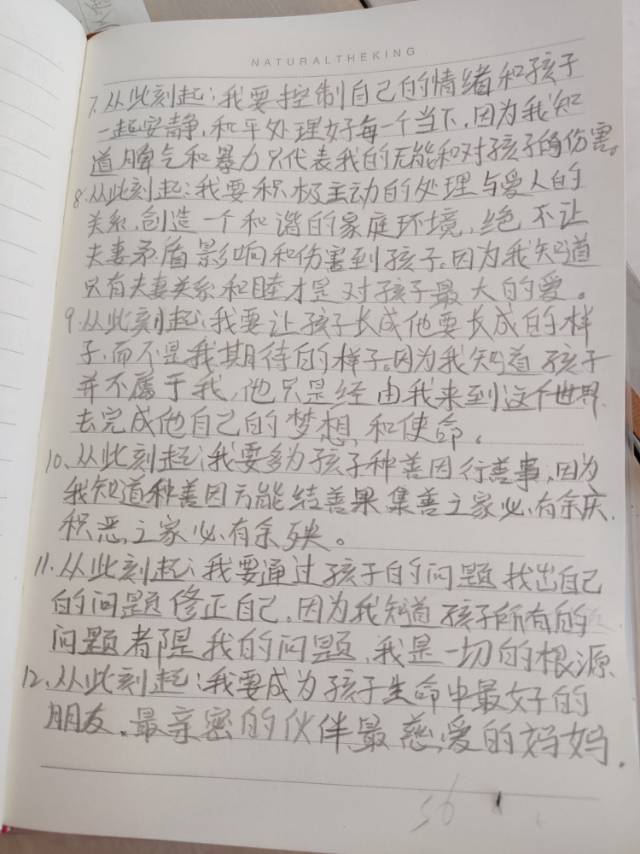 NATURALTHEKING
7.从此刻起:我要控制自己的情绪和孩子
一起安静,和平处理好每一个当下,因为我知
道脾气和暴力只代表我的无能和对孩子的伤害。
8.从此刻起:我要积极主动的处理与爱人的
关系,创造一个和谐的家庭环境,绝不让
夫妻矛盾影响和伤害到孩子。因为我知道
只有夫妻关系和睦才是对孩子最大的爱。
9.从此刻起:我要让孩子长成他要长成的样
子,而不是我期待的样子。因为我知道孩子
并不属于我,他只是经由我来到这个世界
去完成他自己的梦想和使命。
10、从此刻起:我要多为孩子种善因行善事,因为
我知道种善因方能结善果集善之家必有余庆.
积恶之家必有余殃。
11.从此刻起:我要通过孩子的问题找出自己
的问题修正自己,因为我知道孩子所有的
问题者隄我的问题,我是一切的根源.
12、从此刻起:我要成为孩子生命中最好的
朋友、最亲密的伙伴最慈爱的妈妈.
56